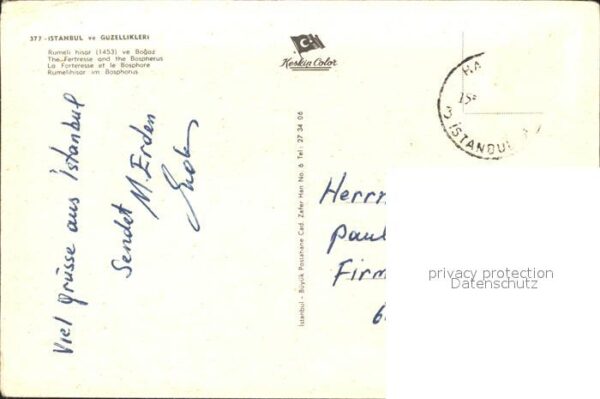 377 - İSTANBUL ve GÜZELLİKLERİ
Rumeli hisar (1453) ve Boğaz
The Fertresse and the Bospherus
La Forteresse et le Bosphore
Rumelihisar im Bosphorus
Keskin Color
İSTANBUL
Viel grüsse aus İstanbul
Sendet M. Erden
İstanbul - Büyük Postahane Cad. Zafer Han No. 6 Tel: 27 34 06
Herrn
Paul
Firm
6
privacy protection
Datenschutz